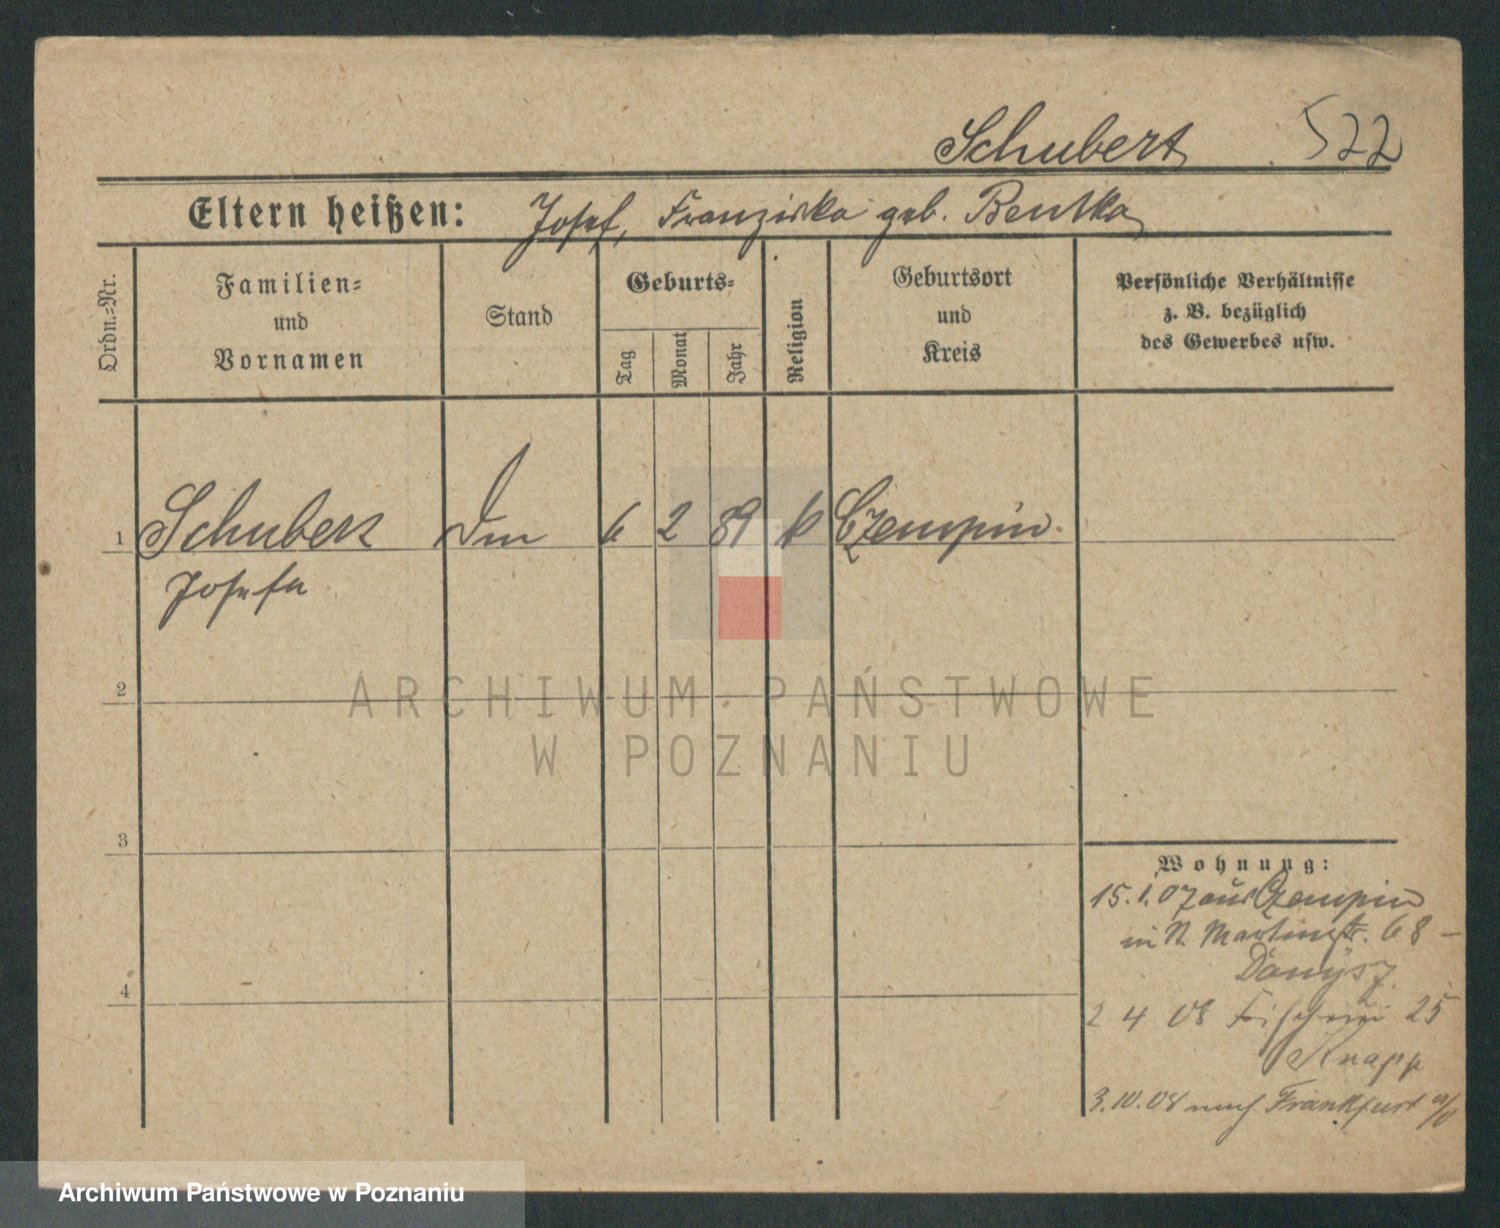 Schubert 522
Eltern heißen: Josef, Franziska geb. Bentka
Ordn.-Nr.
Familien-
und
Vornamen
Stand
Geburts-
Tag
Monat
Jahr
Religion
Geburtsort
und
Kreis
Persönliche Verhältnisse
z. B. bezüglich
des Gewerbes usw.
1 Schubert 6 2 89 k Czempin.
Josefa
2
3
4
Wohnung:
15.1.07 aus Czempin
in St Martinstr. 68 -
Danysz
2 4 08 Fischerei 25
Knapp
3.10.08 nach Frankfurt a/O
ARCHIWUM PAŃSTWOWE
W POZNANIU
Archiwum Państwowe w Poznaniu